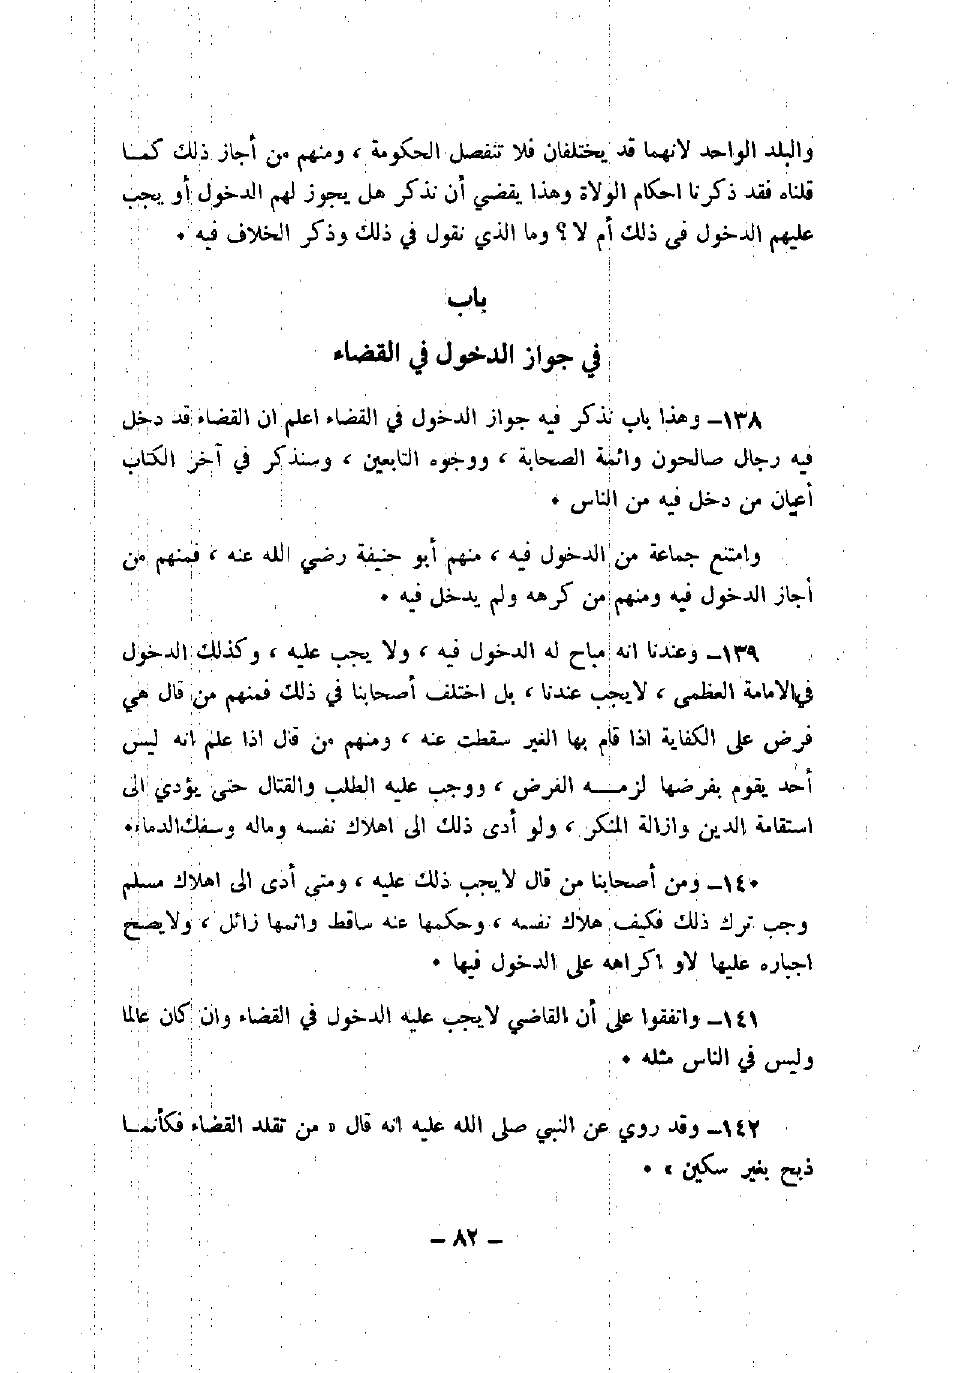 والبلد الواحد لانهما قد يختلفان فلا تنفصل الحكومة ، ومنهم من أجاز ذلك كمـا
قلناه فقد ذكرنا احكام الولاة وهذا يقضي أن نذكر هل يجوز لهم الدخول أو يجب
عليهم الدخول في ذلك أم لا ؟ وما الذي نقول في ذلك وذكر الخلاف فيه ٠
باب
في جواز الدخول في القضاء
١٣٨ـ وهذا باب نذكر فيه جواز الدخول في القضاء اعلم ان القضاء قد دخل
فيه رجال صالحون وائمة الصحابة ، ووجوه التابعين ، وسنذكر في آخر الكتاب
أعيان من دخل فيه من الناس ٠
وامتنع جماعة من الدخول فيه ، منهم أبو حنيفة رضي الله عنه ، فمنهم من
أجاز الدخول فيه ومنهم من كرهه ولم يدخل فيه ٠
١٣٩ـ وعندنا انه مباح له الدخول فيه ، ولا يجب عليه ، وكذلك الدخول
في الامامة العظمى ، لايجب عندنا ، بل اختلف أصحابنا في ذلك فمنهم من قال هي
فرض على الكفاية اذا قام بها الغير سقطت عنه ، ومنهم من قال اذا علم انه ليس
أحد يقوم بفرضها لزمـــه الفرض ، ووجب عليه الطلب والقتال حتى يؤدي الى
استقامة الدين وازالة المنكر ، ولو أدى ذلك الى اهلاك نفسه وماله وسفك الدماء٠
١٤٠ـ ومن أصحابنا من قال لايجب ذلك عليه ، ومتى أدى الى اهلاك مسلم
وجب ترك ذلك فكيف هلاك نفسه ، وحكمها عنه ساقط واثمها زائل ، ولايصح
اجباره عليها لاو اكراهه على الدخول فيها ٠
١٤١ـ واتفقوا على أن القاضي لايجب عليه الدخول في القضاء وان كان عالما
وليس في الناس مثله ٠
١٤٢ـ وقد روي عن النبي صلى الله عليه انه قال « من تقلد القضاء فكأنمـا
ذبح بغير سكين » ٠
– ٨٢ –